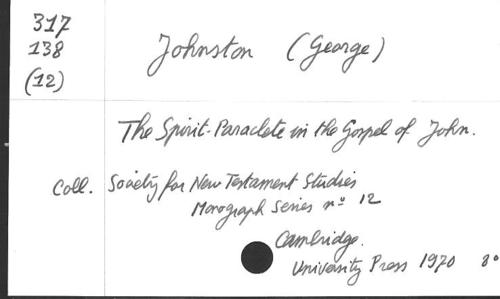 317
138
(12)
Johnston (George)
The Spirit-Paraclete in the Gospel of John.
Coll. Society for New Testament Studies
Monograph Series nº 12
Cambridge.
University Press 1970 8º